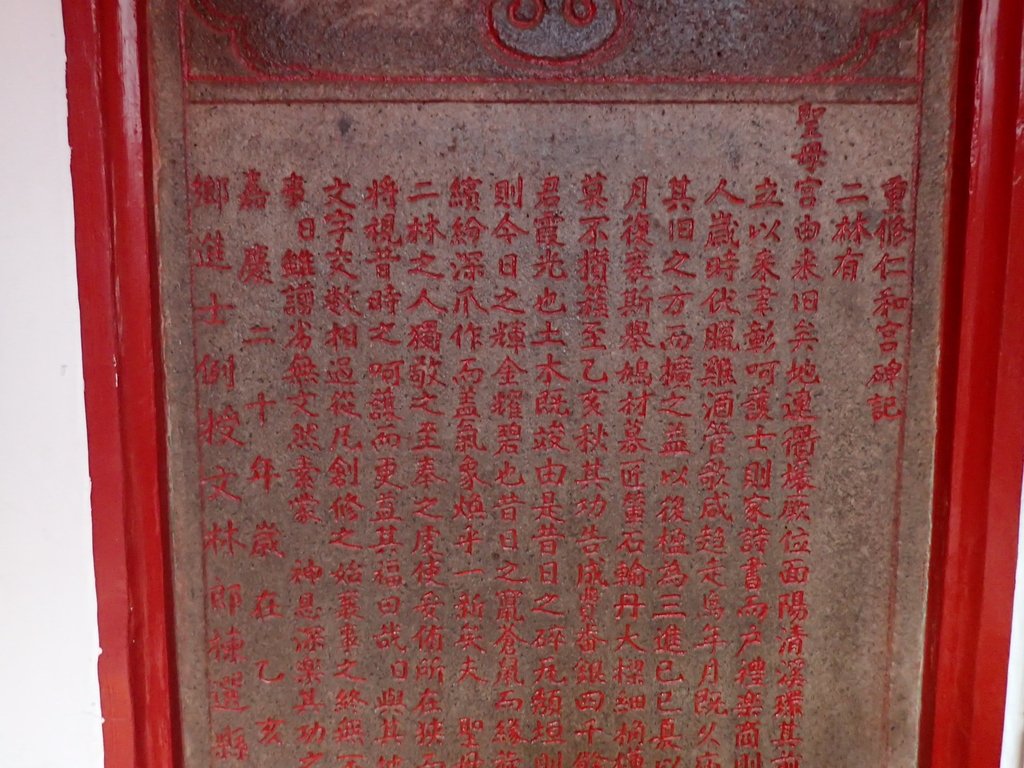 重修仁和宮碑記
二林有
聖母宮由来旧矣地連衢爆厥位面陽清溪環其前
立以来聿彰呵護士則家詩書而户禮樂商則
人歲時伏臘雞酒管歌咸趨走焉年月既久庙
其旧之方而擴之盖以後楹為三進己巳具以
月復蒙斯舉鳩材募匠蜃石輸丹大楔細桷
莫不撙蕋至乙亥秋其功告成費番銀四千餘
君霞光也土木既竣由是昔日之碎瓦頹垣則
則今日之輝金耀碧也昔日之鼠倉鼠而緣
繽紛深爪作而盖氣象煥乎一新矣夫 聖
二林之人獨敬之至奉之虔使妥侑所在狹而
将視昔時之呵護而更亘其福田哉日與其
文字交数相過從凡創修之始襄事之終無不
委日雖謭劣無文然素蒙 神恩深樂其功之
嘉慶二十年歲在乙亥
鄉進士例授文林郎揀選縣